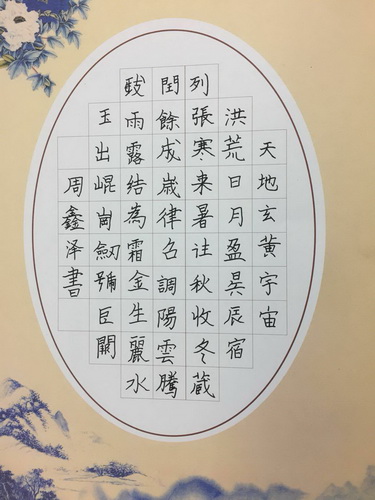 天地玄黃宇宙
洪荒日月盈昃辰宿
列張寒来暑往秋收冬蔵
閏餘成歳律召調陽雲騰
致雨露結為霜金生麗水
玉出崐崗劔號巨闕
周鑫泽書